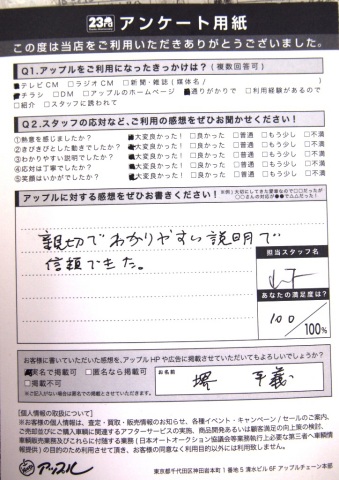 23周年 アンケート用紙
この度は当店をご利用いただきありがとうございました。
Q1.アップルをご利用になったきっかけは?(複数回答可)
テレビCM □ラジオCM □新聞・雑誌(媒体名/ )
チラシ □DM □アップルのホームページ 通りがかりで □利用経験があるので
□紹介 □スタッフに誘われて
Q2.スタッフの応対など、ご利用の感想をぜひお聞かせください!
①熱意を感じましたか? 大変良かった! □良かった □普通 □もう少し □不満
②きびきびとした動きでしたか? 大変良かった! □良かった □普通 □もう少し □不満
③わかりやすい説明でしたか? 大変良かった! □良かった □普通 □もう少し □不満
④応対は丁寧でしたか? 大変良かった! □良かった □普通 □もう少し □不満
⑤笑顔はいかがでしたか? 大変良かった! □良かった □普通 □もう少し □不満
アップルに対する感想をぜひお書きください!
※例)大切にしてきた愛車なので○○だったが
○○さんの対応が●●で△△だった!
親切でわかりやすい説明で
信頼できた。
担当スタッフ名
あなたの満足度は?
100
/100%
お客様に書いていただいた感想を、アップルHPや広告に掲載させていただいてもよろしいでしょうか?
実名で掲載可 □匿名なら掲載可
□掲載不可
※ご記入がない場合は匿名での掲載とさせていただきます。
お名前
堺
【個人情報の取扱について】
※お客様の個人情報は、査定・買取・販売情報のお知らせ、各種イベント・キャンペーン/セールのご案内、
ご売却並びにご購入車輌に関連するアフターサービスの実施、商品開発あるいは顧客満足の向上策の検討、
車輌販売業務及びこれらに付随する業務(日本オートオークション協議会等業務執行上必要な第三者へ車輌情
報提供)の目的のため利用させて頂き、お客様の同意なく利用目的以外には利用いたしません。
アップル
東京都千代田区神田岩本町1番地5 清水ビル6F アップルチェーン本部